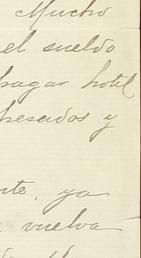 Mucho
el sueldo
pagar hotel
pesados y
ya
vuelva